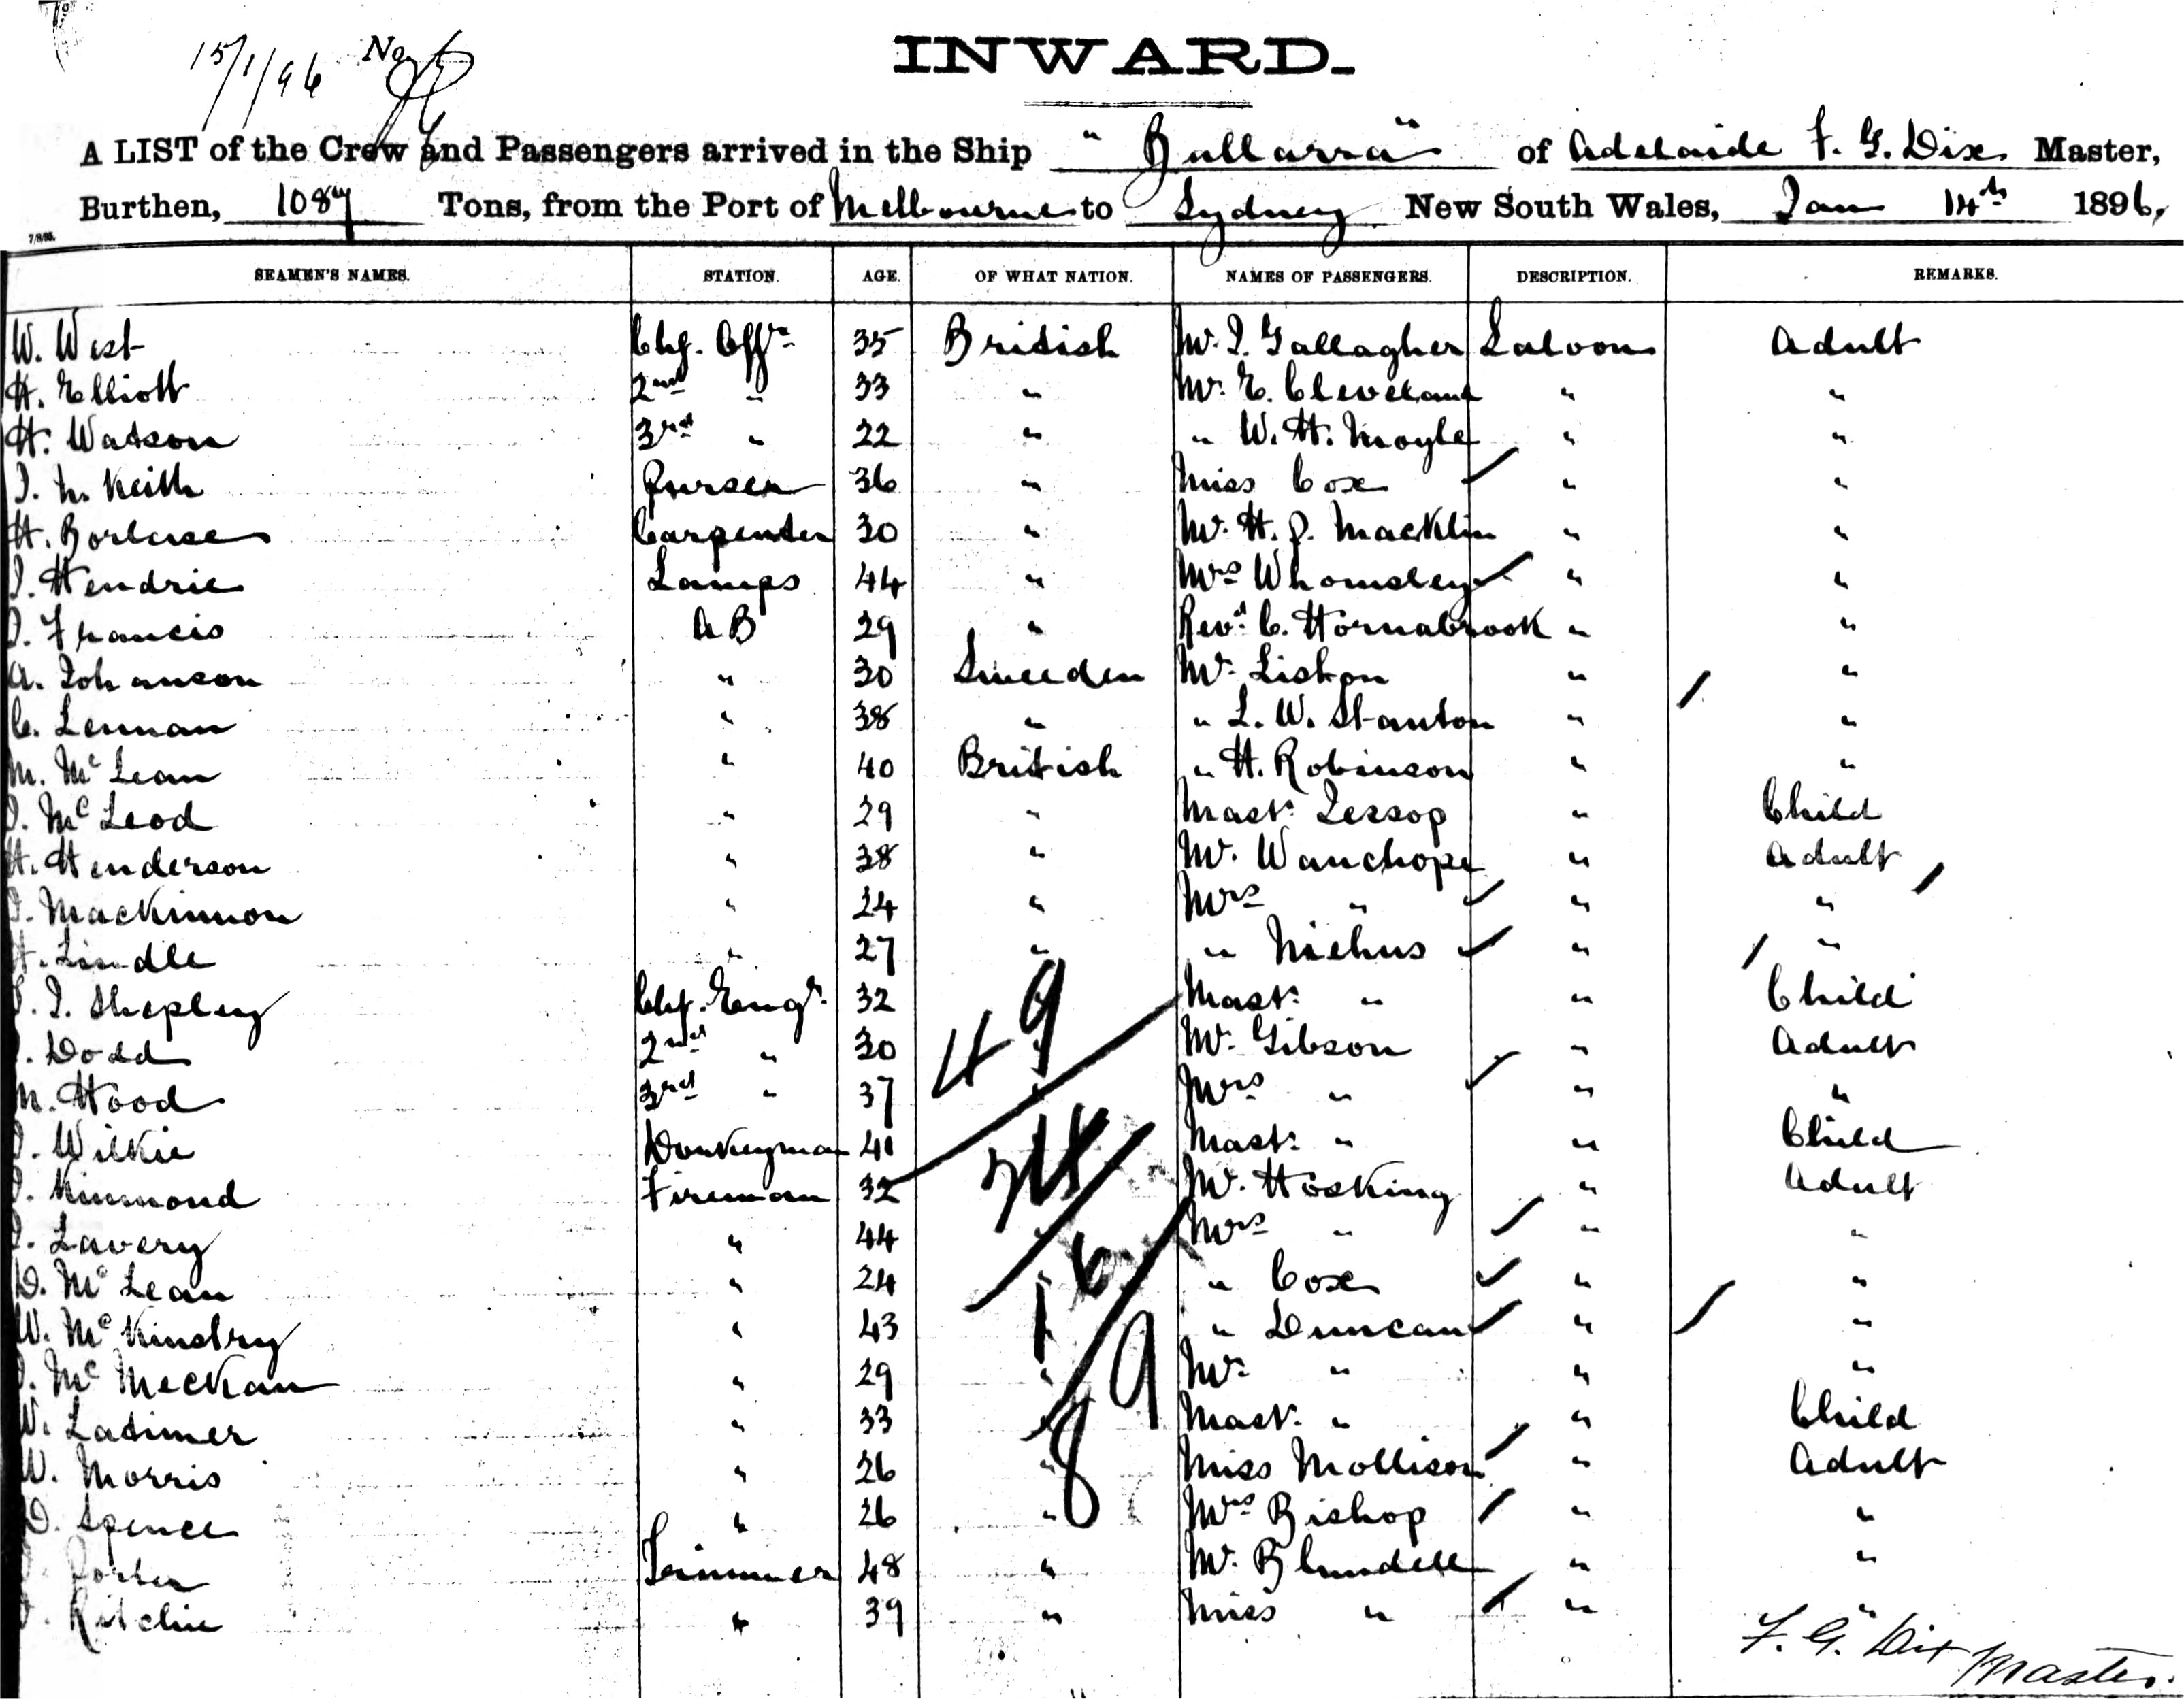 15/1/96 No
INWARD.
A LIST of the Crew and Passengers arrived in the Ship "Bullarra" of Adelaide F. G. Dix Master,
Burthen, 1087 Tons, from the Port of Melbourne to Sydney New South Wales, Jan 14th 1896,
7/8/95.
SEAMEN'S NAMES. STATION. AGE. OF WHAT NATION. NAMES OF PASSENGERS. DESCRIPTION. REMARKS.
W. West Chf. Offr 35 British Mr. J. Gallagher Saloon Adult
H. Elliott 2nd " 33 " Mr. E. Cleveland " "
H. Watson 3rd " 22 " " W. H. Moyle " "
J. N. Keith Purser 36 " Miss Cox " "
H. Borlase Carpenter 30 " Mr. H. P. Macklin " "
J. Hendrie Lamps 44 " Mrs Whomsley " "
J. Francis AB 29 " Revd. C. Hornabrook " "
A. Johanson " 30 Sweeden Mr. Liston " "
C. Lennan " 38 " " L. W. Stanton " "
M. McLean " 40 British " H. Robinson " "
J. McLeod " 29 " Mastr. Jessop " Child
H. Henderson " 38 " Mr. Wauchope " Adult
J. Mackinnon " 24 " Mrs " " "
H. Lindle " 27 " " Niehus " "
J. Shepley Chf. Engr. 32 Mastr. " " Child
Dodd 2nd " 30 " Mr. Gibson " Adult
M. Hood 3rd " 37 " Mrs " " "
J. Wilkie Donkeyman 41 Mastr. " " Child
Kinmond Fireman 32 Mr. Hosking " Adult
J. Lavery " 44 " Mrs " " "
D. McLean " 24 " " Cox " "
W. McKinstry " 43 " " Duncan " "
J. McMeckan " 29 " Mr. " " "
W. Latimer " 33 " Mastr. " " Child
W. Morris " 26 " Miss Mollison " Adult
D. Spence " 26 " Mrs Bishop " "
Porter Trimmer 48 " Mr. Blundell " "
Ritchie " 39 " Miss " " "
49
F. G. Dix Master.